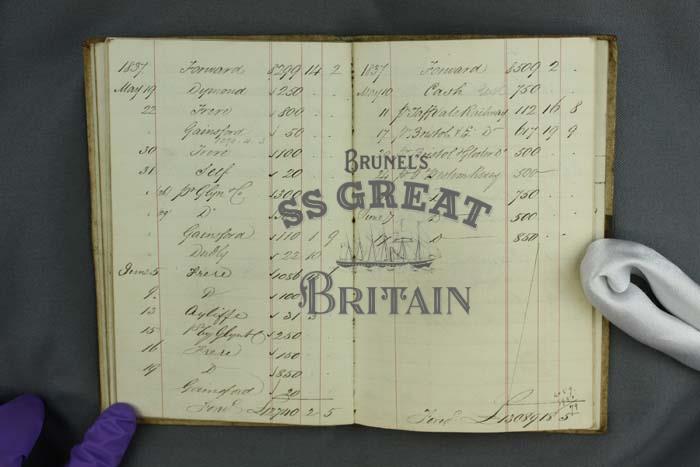 1837 Forward 5299 14 2
May 19 Dymond 250
22 Frere 800
Gainsford 50
30 Frere 100
31 Self 20
Glyn & Co 300
D°
Gainsford 110 1 9
22 10
June 5 Frere 1056
9 D° 100
13 Ayliffe 31 3
15 Glyn & Co 250
16 Frere 150
19 D° 850
Gainsford 20
Forwd
1837 Forward 5509 2
May 10 Cash 750
11 Taff Vale Railway 112 16 8
17 Bristol & E. D° 617 19 9
Bristol & Gloster D° 500
24 500
750
June 7 500
17 850
Forwd £13089 18 5
BRUNEL'S
SS GREAT
BRITAIN